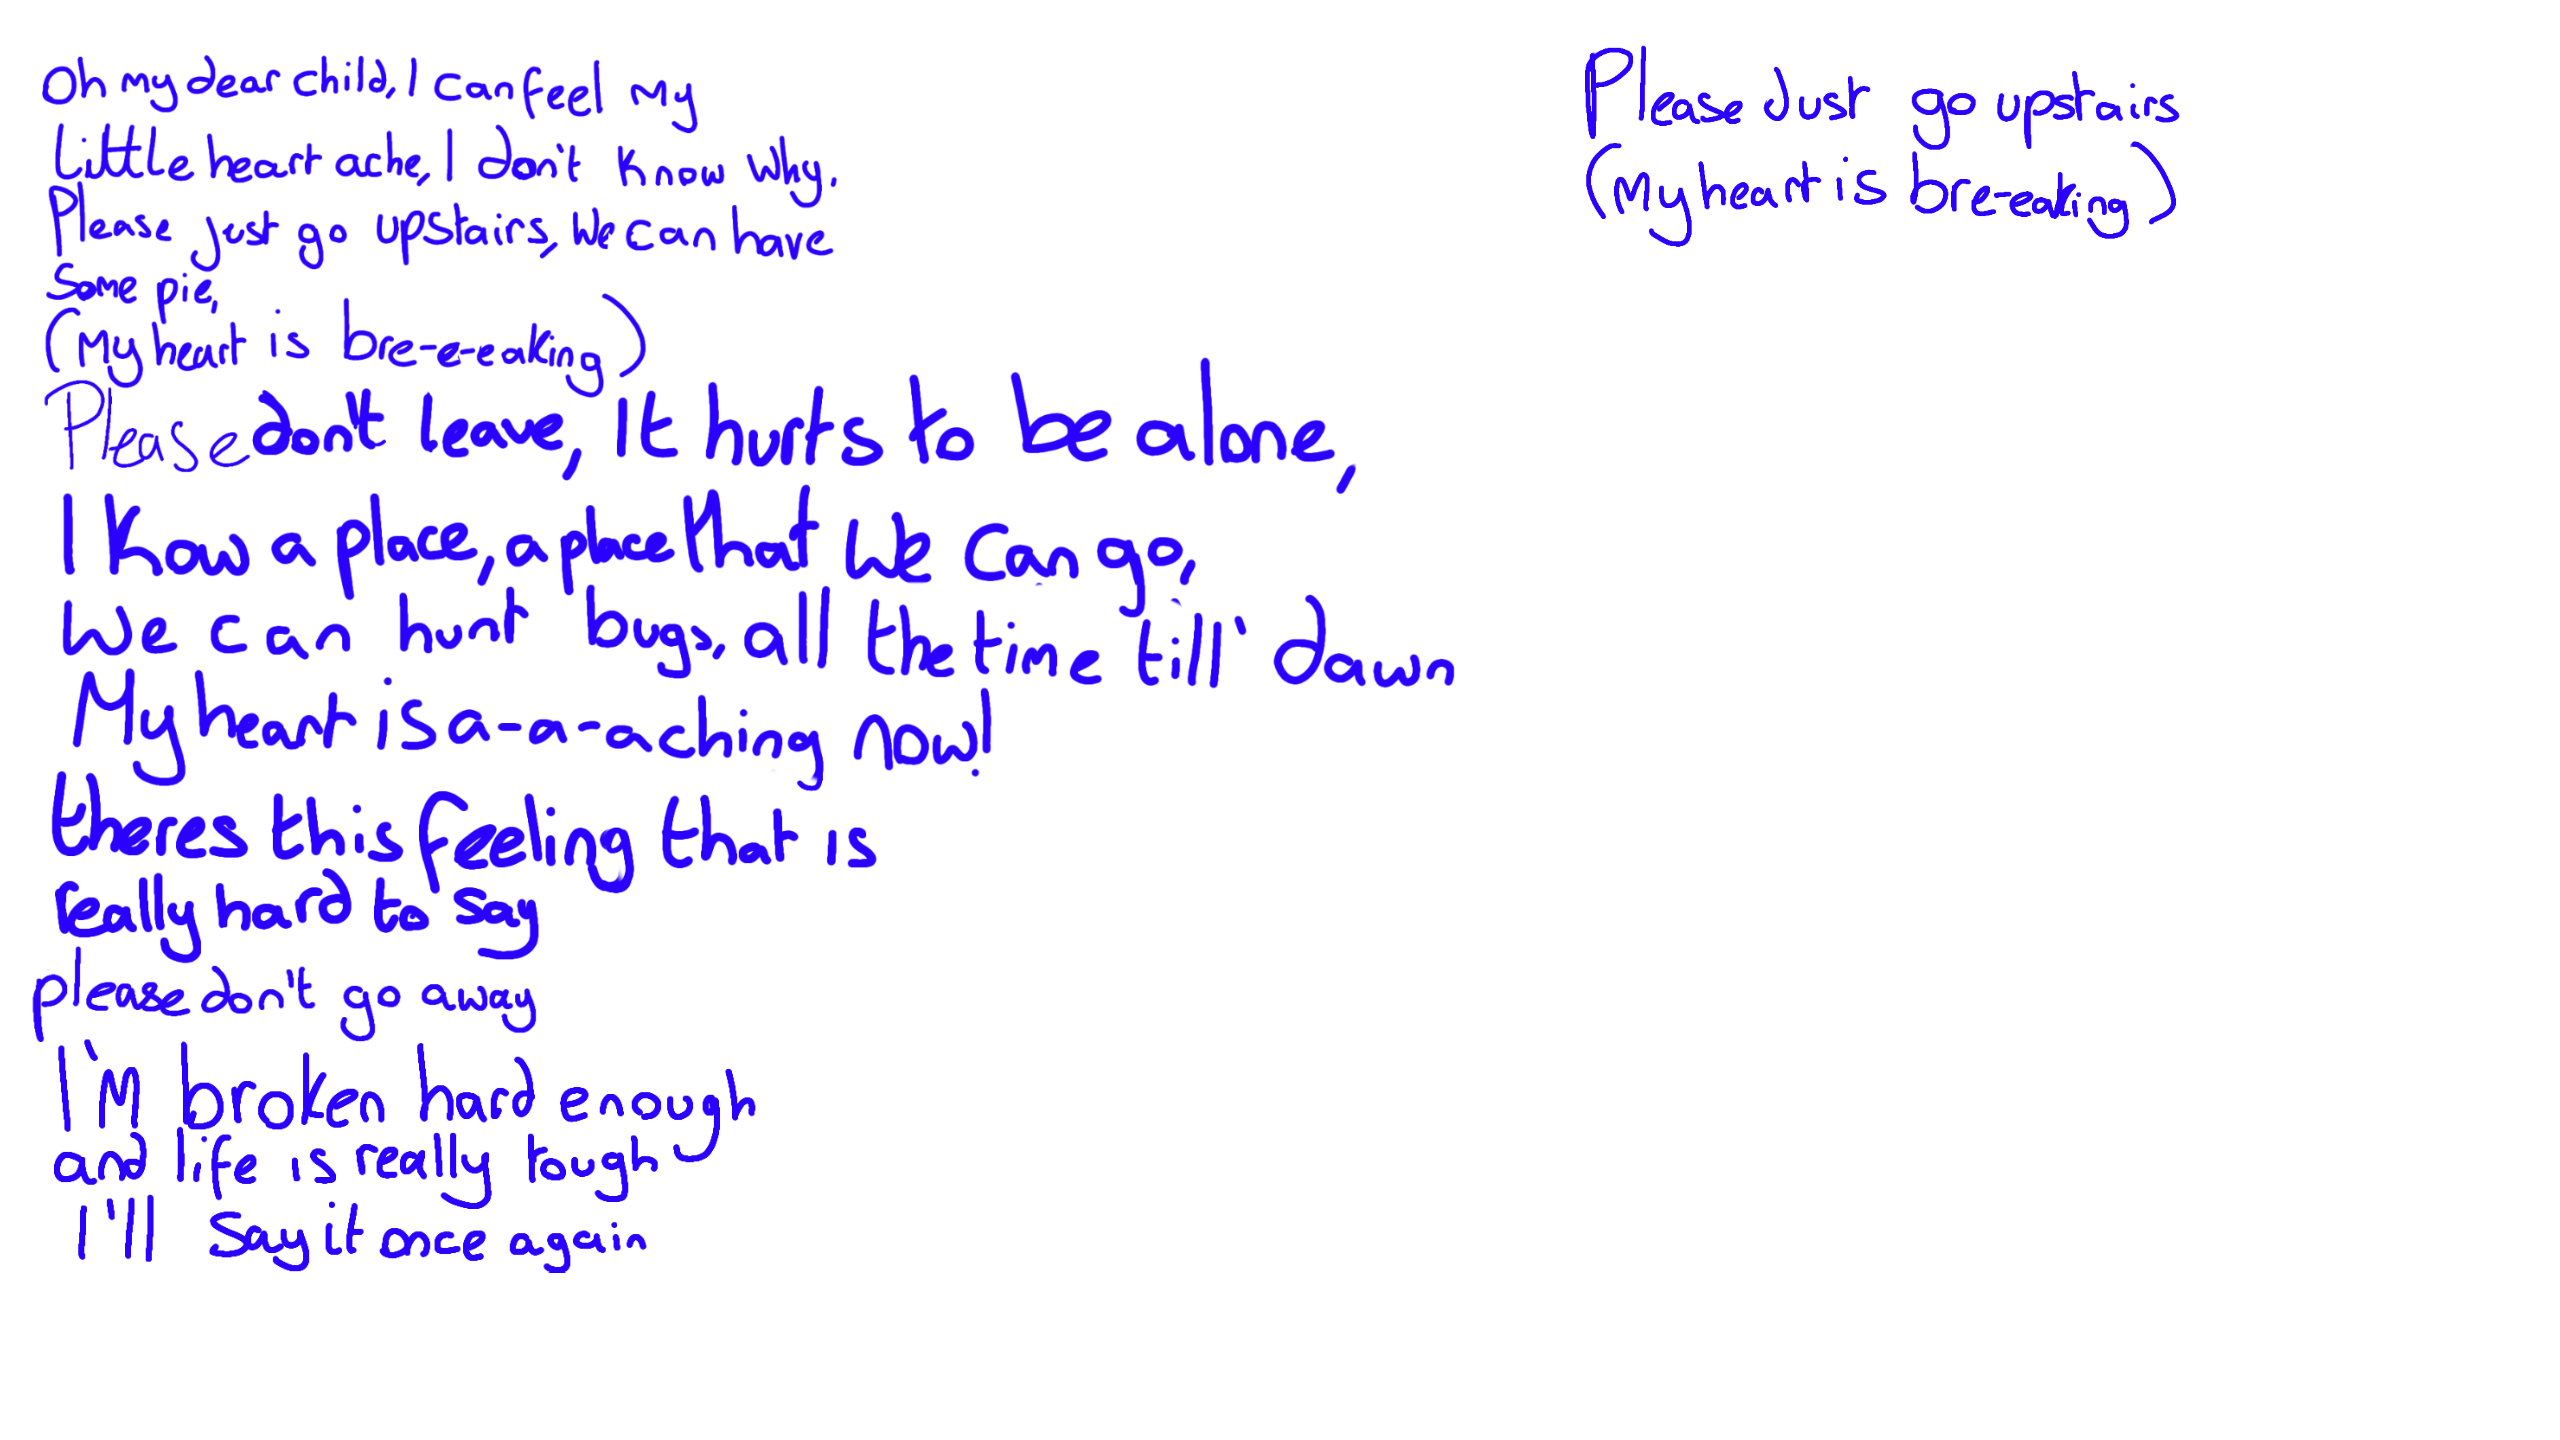 Oh my dear child, I can feel my
little heart ache, I don't know why.
Please just go upstairs, we can have
some pie,
(My heart is bre-e-eaking)
Please don't leave, It hurts to be alone,
I know a place, a place that we can go,
We can hunt bugs, all the time till' dawn
My heart is a-a-aching now!
theres this feeling that is
really hard to say
please don't go away
I'm broken hard enough
and life is really tough
I'll say it once again
Please Just go upstairs
(My heart is bre-eaking)